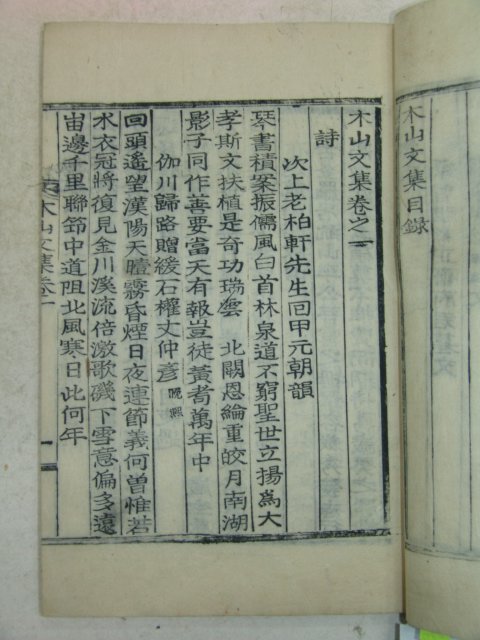 木山文集目錄
木山文集卷之一
詩
次上老柏軒先生回甲元朝韻
琴書積案振儒風白首林泉道不窮聖世立揚爲大
孝斯文扶植是奇功瑞雲 北闕恩綸重皎月南湖
影子同作善要當天有報豈徒黃耈萬年中
伽川歸路贈緩石權丈仲彦
回頭遙望漢陽天曀霧昏煙日夜連節義何曾惟若
水衣冠將復見金川溪流倍激歌磯下雪意偏多遠
峀邊千里聯節中道阻北風寒日此何年
木山文集卷一
一